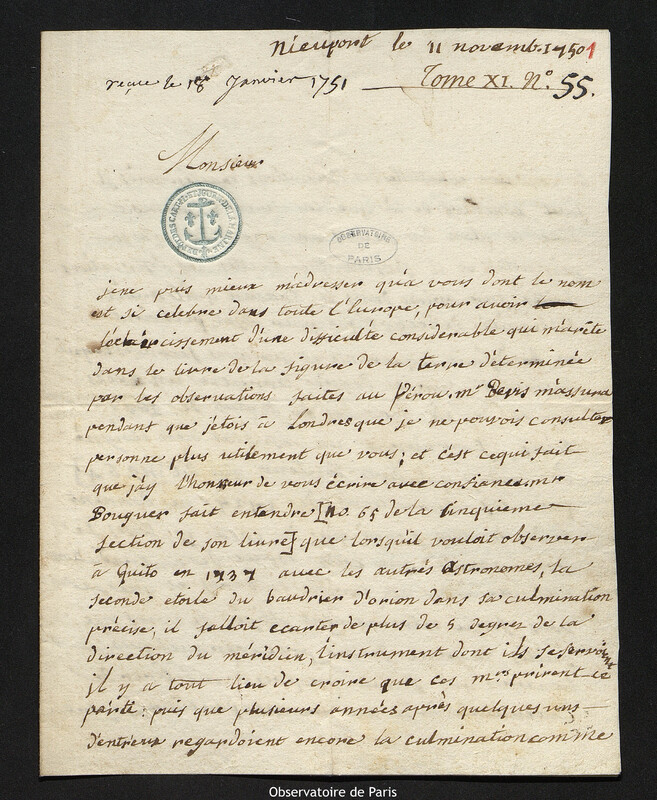 Nieuport le 11 novemb. 1750 1
reçue le 18e Janvier 1751 Tome XI. N° 55.
Monsieur
OBSERVATOIRE
DE
PARIS
je ne puis mieux m'adresser qu'a vous dont le nom
est si celebre dans toute l'Europe, pour avoir
l'éclaircissement d'une difficulté considerable qui m'arête
dans le livre de la figure de la terre déterminée
par les observations faites au Pérou. mr Bevis m'assura
pendant que j'etois à Londres que je ne pouvois consulter
personne plus utilement que vous; et c'est ce qui fait
que j'ay l'honneur de vous écrire avec confiance. mr
Bouguer fait entendre [no. 65 de la cinquieme
section de son livre] que lorsqu'il vouloit observer
à Quito en 1737 avec les autres astronomes, la
seconde etoile du baudrier d'orion dans sa culmination
précise, il falloit ecarter de plus de 5 degrez de la
direction du méridien, l'instrument dont ils se servoient
il y a tout lieu de croire que ces mrs prirent ce
parti: puis que plusieurs années après quelques uns
d'entreux regardoient encore la culmination comme
Observatoire de Paris